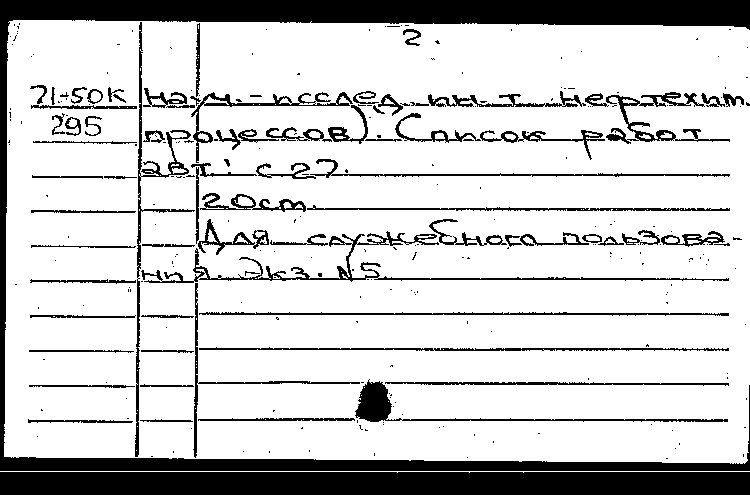 2.
71-50К Науч.-исслед. ин-т нефтехим.
295 процессов). (Список работ
авт.: с 27.
20 ст.
Для служебного пользова-
ния. Экз. N5.